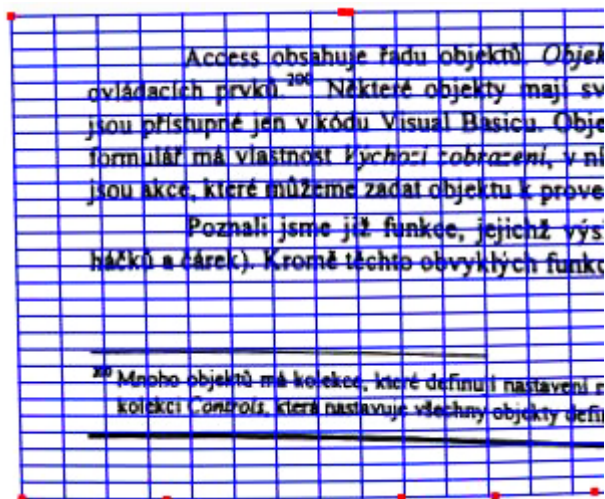 Access obsahuje řadu objektů. Objek
ovládacích prvků.200 Některé objekty mají sv
jsou přístupné jen v kódu Visual Basicu. Obje
formulář má vlastnost Výchozí zobrazení, v n
jsou akce, které můžeme zadat objektu k prove
Poznali jsme již funkce, jejichž výs
háčků a čárek). Kromě těchto obvyklých funkc
200 Mnoho objektů má kolekce, které definují nastavení
kolekci Controls, která nastavuje všechny objekty defin